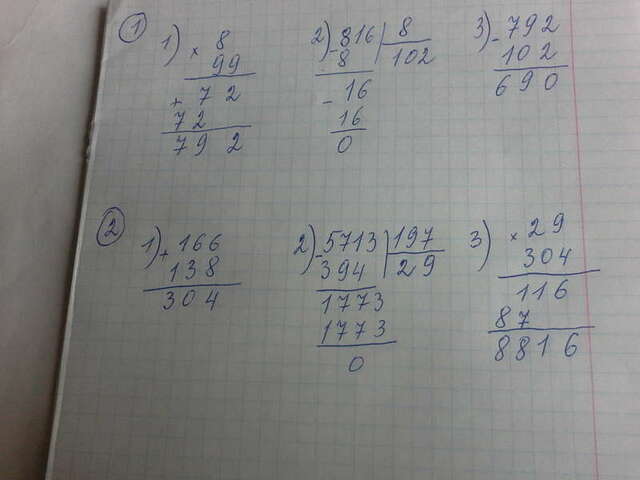 ①
1) × 8
99
+ 72
72
792
2) - 816 | 8
8 | 102
- 16
16
0
3) - 792
102
690
②
1) + 166
138
304
2) - 5713 | 197
394 | 29
1773
1773
0
3) × 29
304
116
87
8816